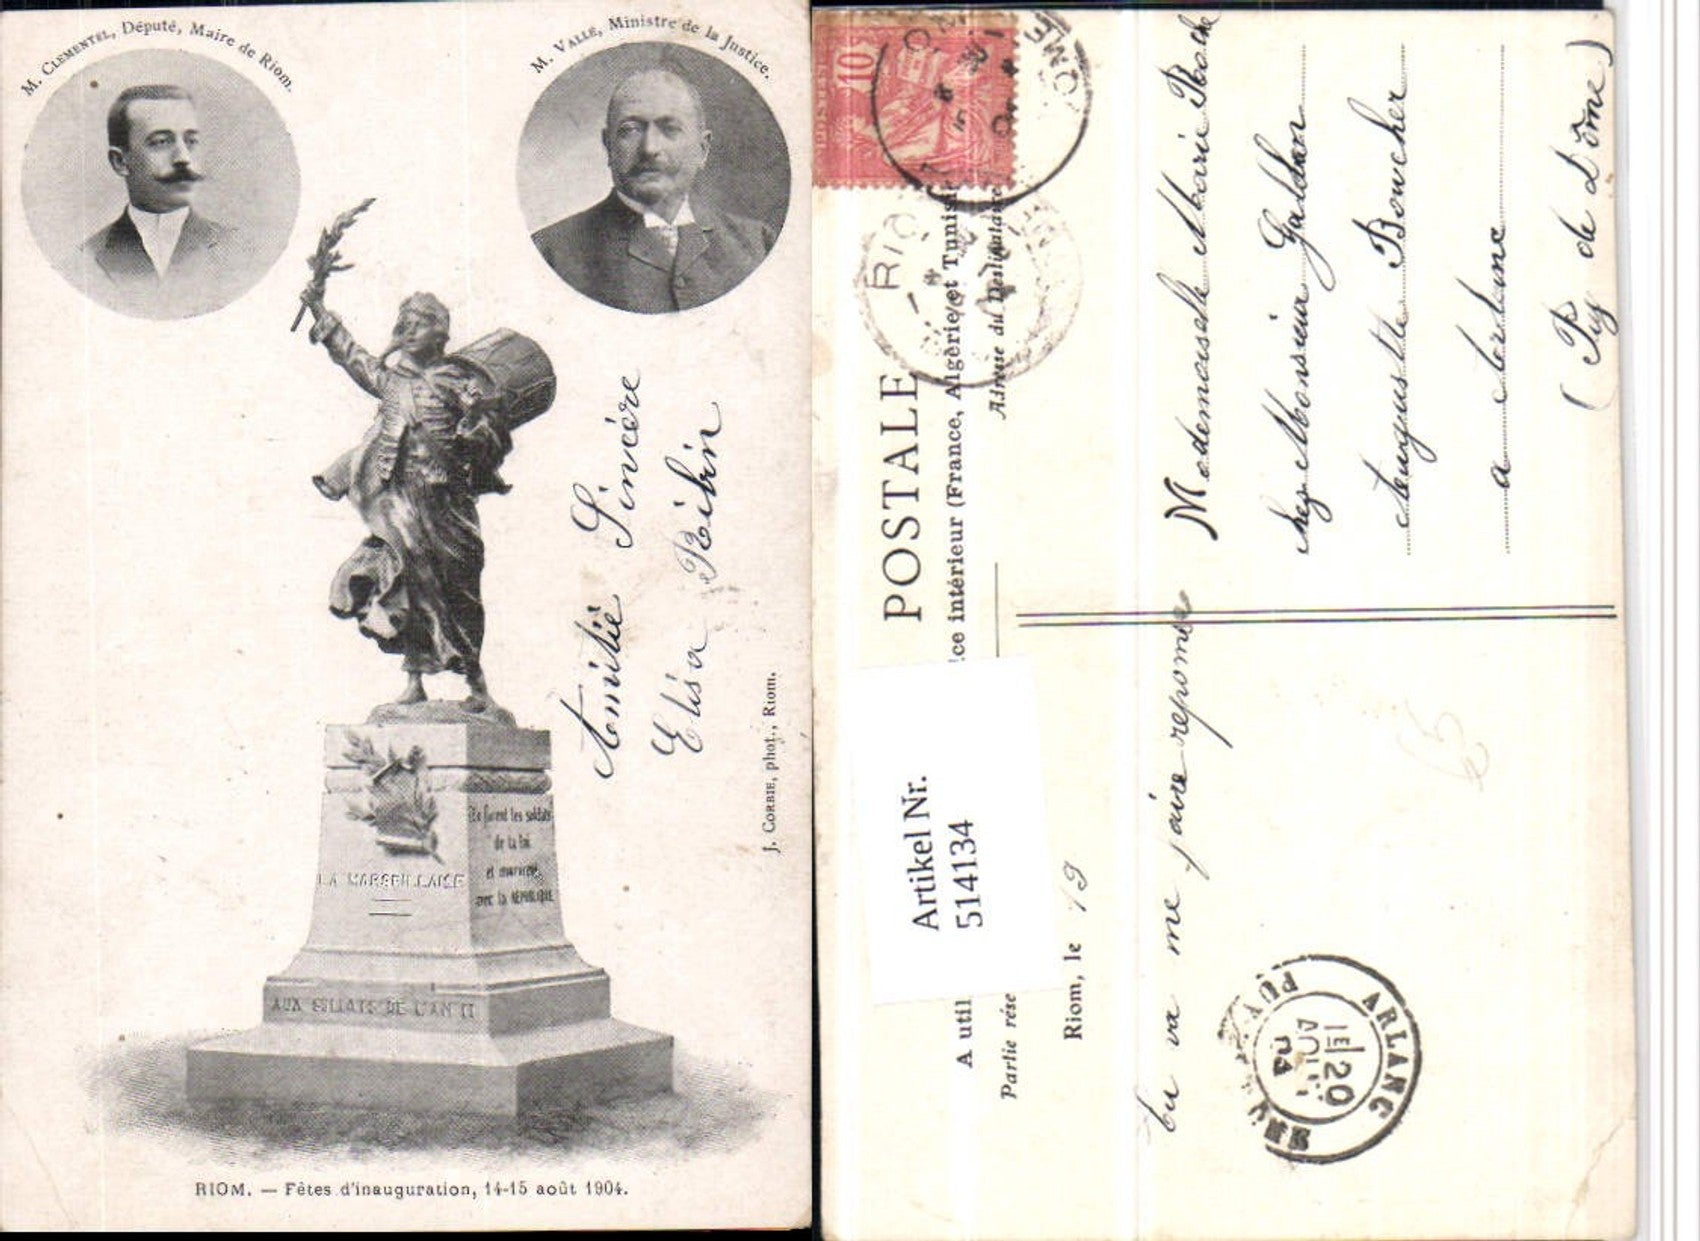 M. CLEMENTEL, Député, Maire de Riom.
M. VALLÉ, Ministre de la Justice.
Amitié Sincère
Elisa Ribin
J. CORBIE, phot., Riom.
En furent les soldats
de la loi
et marchent
avec la RÉPUBLIQUE
LA MARSEILLAISE
AUX SOLDATS DE L'AN II
RIOM. — Fêtes d'inauguration, 14-15 août 1904.
10
RIO
POSTALE
A util ce intérieur (France, Algérie et Tunisie
Partie rése
Adresse du Destinataire
Artikel Nr.
514134
Riom, le 19
tu va me faire reponse
Mademoiselle Marie
chez Monsieur
Auguste Boucher
a Arlanc
(Puy de Dôme)
ARLANC
PUY
1E
20
AOUT
04